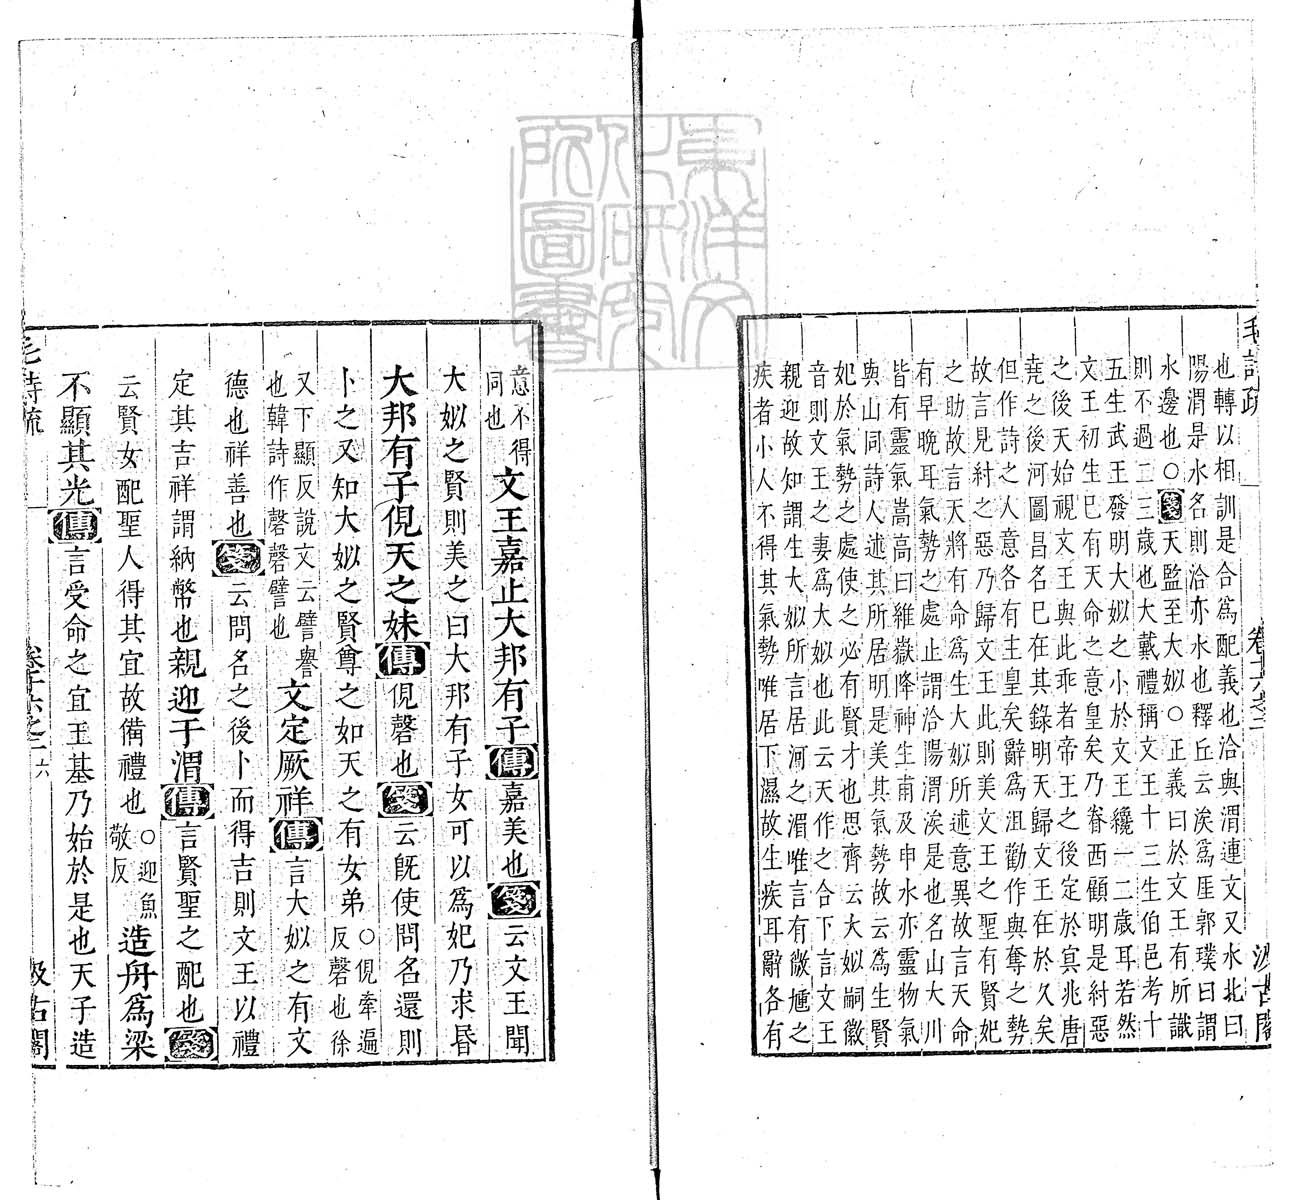 毛詩疏 卷十六之二 汲古閣
也轉以相訓是合爲配義也洽與渭連文又水北曰
陽渭是水名則洽亦水也釋丘云涘爲厓郭璞曰謂
水邊也○箋天監至大姒○正義曰於文王有所識
則不過二三歲也大戴禮稱文王十三生伯邑考十
五生武王發明大姒之小於文王纔一二歲耳若然
文王初生巳有天命之意皇矣乃眷西顧明是紂惡
之後天始視文王與此乖者帝王之後定於冥兆唐
堯之後河圖昌名巳在其錄明天歸文王在於久矣
但作詩之人意各有主皇矣辭爲沮勸作與奪之勢
故言見紂之惡乃歸文王此則美文王之聖有賢妃
之助故言天將有命爲生大姒所述意異故言天命
有早晚耳氣勢之處止謂洽陽渭涘是也名山大川
皆有靈氣嵩高曰維嶽降神生甫及申水亦靈物氣
與山同詩人述其所居明是美其氣勢故云爲生賢
妃於氣勢之處使之必有賢才也思齊云大姒嗣徽
音則文王之妻爲大姒也此云天作之合下言文王
親迎故知謂生大姒所言居河之湄唯言有微尰之
疾者小人不得其氣勢唯居下濕故生疾耳辭各有
意不得
同也
文王嘉止大邦有子傳嘉美也箋云文王聞
大姒之賢則美之曰大邦有子女可以爲妃乃求昏
大邦有子俔天之妹傳俔磬也箋云旣使問名還則
卜之又知大姒之賢尊之如天之有女弟
○俔牽遍
反磬也徐
又下顯反說文云譬譽
也韓詩作磬磬譬也
文定厥祥傳言大姒之有文
德也祥善也箋云問名之後卜而得吉則文王以禮
定其吉祥謂納幣也親迎于渭傳言賢聖之配也箋
云賢女配聖人得其宜故備禮也
○迎魚
敬反
造舟爲梁
不顯其光傳言受命之宜王基乃始於是也天子造
毛詩疏 卷十六之二 六 汲古閣
東洋文化研究所圖書